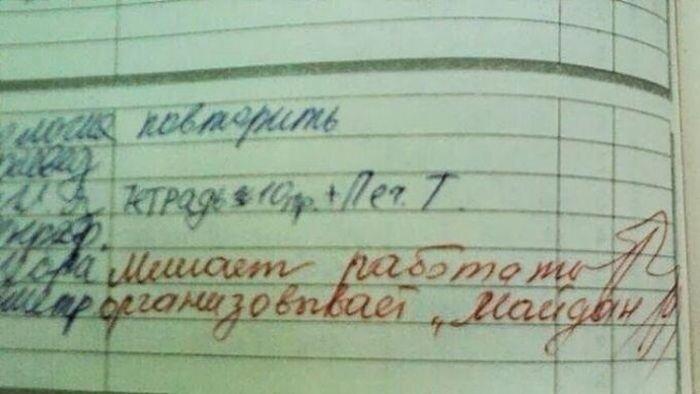 повторить
тетрадь 10 пр. + Печ. Т.
Мешает работать
организовывает „Майдан"